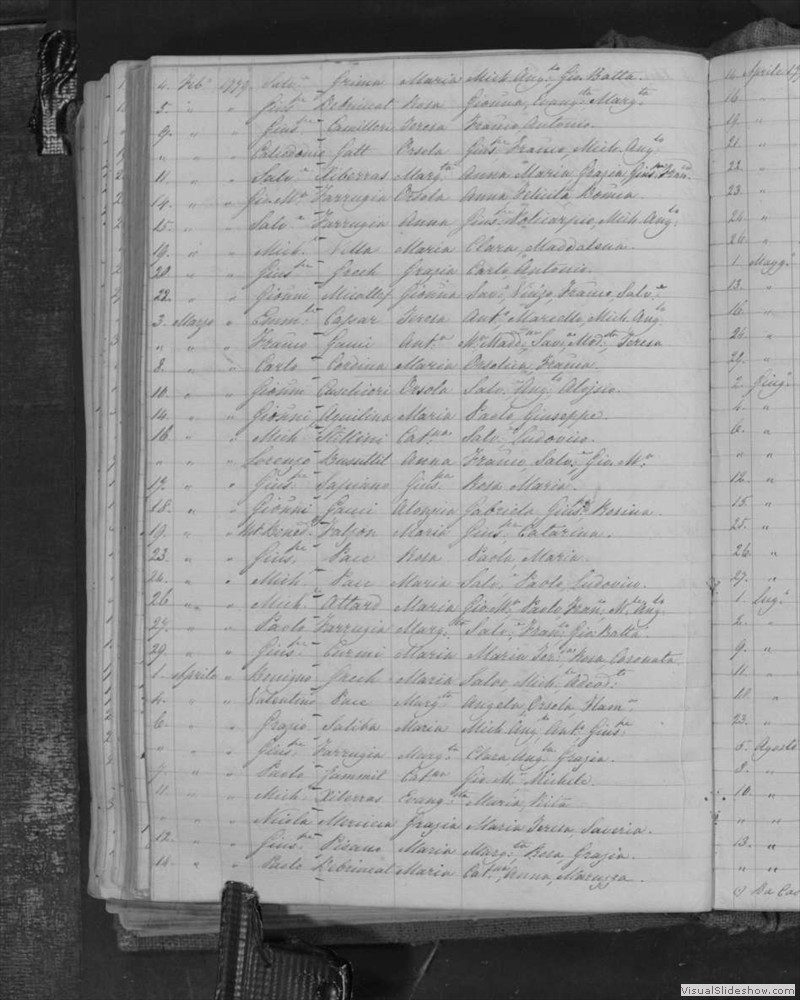 4. Feb.º 1879 Salv.e Grima Maria Mich.Ang.lo Gio.Batta.
5. " " Gius.pe Debrincat Rosa Gionna, Evang.ta Marg.ta
9. " " Gius.pe Camilleri Teresa Franco, Antonio.
" " " Calcidonio Galt Orsola Gius.pe Franco, Mich.Ang.lo
11. " " Salv.e Xiberras Marg.ta Anna Maria Grazia Gius.
14. " " Gio.M.a Farrugia Orsola Anna Felicita
15. " " Salv.e Farrugia Anna Gius.pe Policarpio, Mich.Ang.lo
19. " " Mich.e Vella Maria Clara, Maddalena.
20. " " Gius.pe Grech Grazia Carlo, Antonio.
22. " " Gionni Micallef Gionna Sav.o Franco, Salv.e
3. Marzo " Emm.le Caffar Teresa Ant.o Marcello, Mich.Ang.lo
" " " Franco Gauci Ant.a M.a Madd.na Teresa
8. " " Carlo Cordina Maria
10. " " Gionni Orsola Salv.e Ang.lo Aloisio.
14. " " Gionni Aquilina Maria Paolo Giuseppe.
16. " " Mich.e Stellini Cat.na Salv.e Ludovico.
" " " Lorenzo Busuttil Anna Franco, Salv.e Gio.M.a
17. " " Gius.pe Sapiano Gius.a Rosa Maria.
18. " " Gionni Gauci Aloisia Gabriela Gius.a Rosina.
19. " " Not.Bened.o Falzon Maria Gius.pa Catarina.
23. " " Gius.pe Pace Rosa Paola Maria.
24. " " Mich.e Pace Maria Salv.e Paolo, Ludovico.
26 " " Mich.e Attard Maria Gio.M.a Paolo, Fran.o M.Ang.lo
27. " " Paolo Farrugia Marg.ta Salv.e Fran.o Gio.Batta.
29. " " Gius.pe Curmi Maria Maria Ter.sa Rosa Coronata.
1. Aprile " Benigno Grech Maria Salv.e Mich.e Adeod.to
4. " " Valentino Pace Marg.ta Angela, Orsola
6. " " Grazio Saliba Maria Mich.Ang.lo Ant.o Gius.pe
" " " Gius.pe Farrugia Marg.ta Clara Ang.la Grazia.
9. " " Paolo Zammit Cat.na Gio.M.a Michele.
11. " " Mich.e Xiberras Evang.ta Maria, Rita
" " " Nicola Mercieca Grazia Maria Teresa Saveria.
12. " " Gius.pe Pisano Maria Marg.ta Rosa, Grazia.
14. " " Paolo Debrincat Maria Cat.na Anna, Maruzza.
14. Aprile 17
16 "
19. "
21. "
22. "
23. "
24. "
26. "
1. Magg.o
13. "
16. "
24. "
29. "
2. Giug.o
4. "
6. "
" "
12. "
15. "
25. "
26. "
27. "
1. Lug.o
2. "
9. "
11. "
" "
23. "
5. Agosto
8. "
10. "
" "
13. "
" "
VisualSlideshow.com